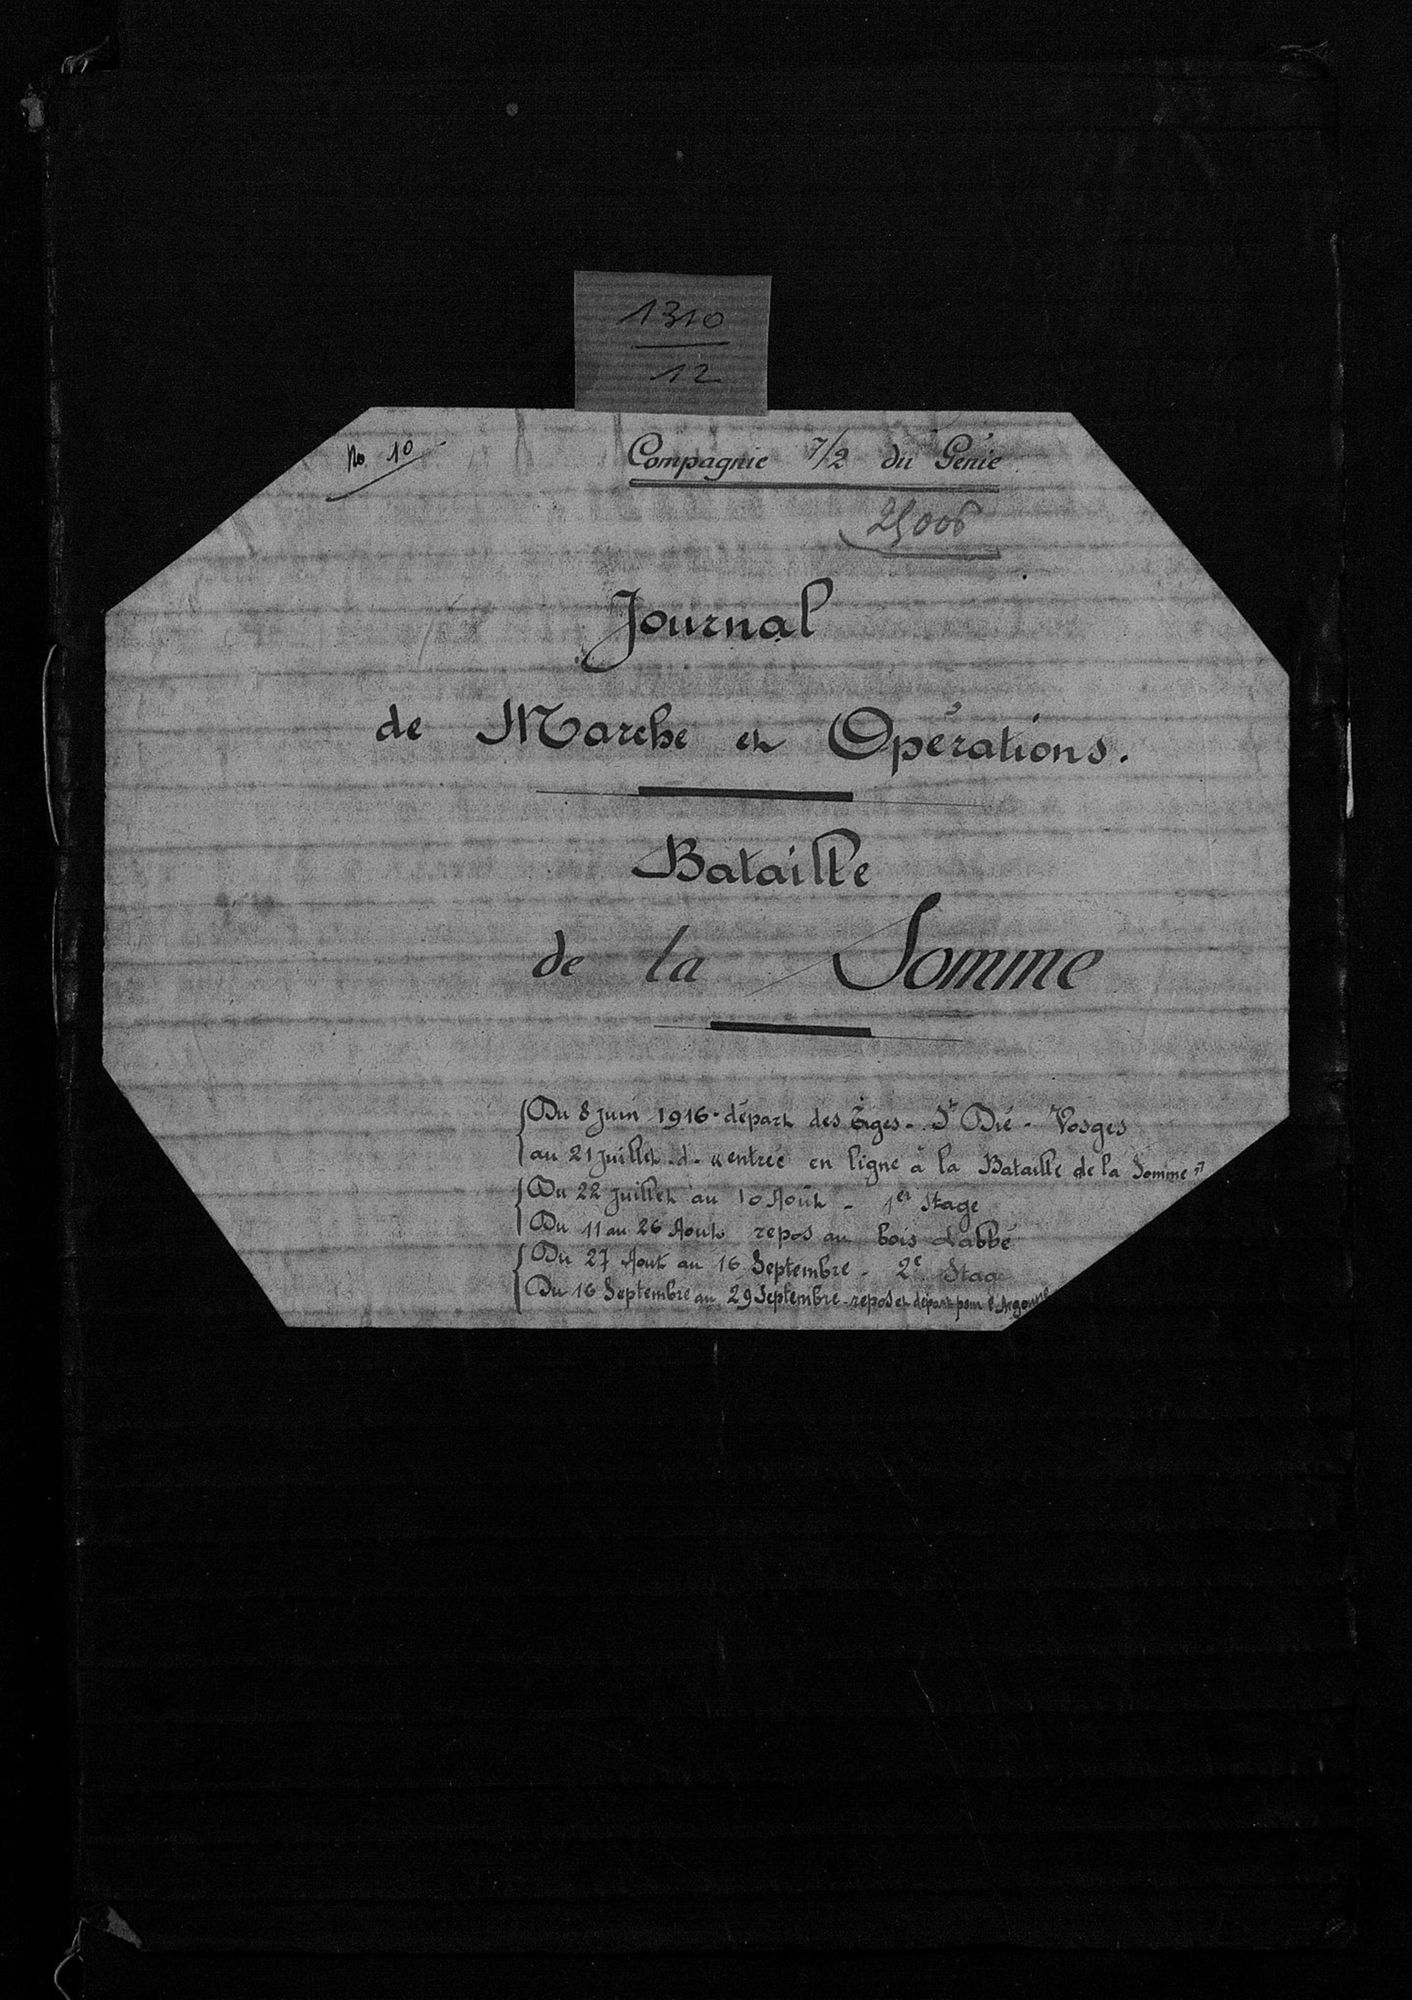 1310
12
No. 10
Compagnie 7/2 du Génie
25006
Journal
de Marche et Opérations.
Bataille
de la Somme
Du 8 juin 1916 - départ des Tiges - St Dié - Vosges
au 21 juillet - d - "entrée en ligne à la Bataille de la Somme"
Du 22 juillet au 10 Août - 1er Stage
Du 11 au 26 Août repos au bois l'abbé
Du 27 Aout au 16 Septembre - 2e Stage
Du 16 Septembre au 29 Septembre - repos et départ pour l'Argonne